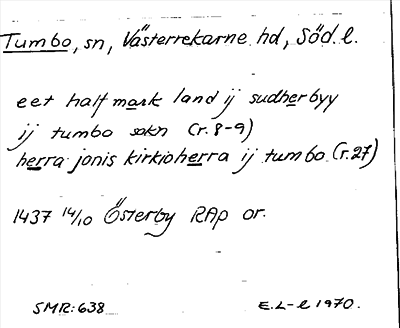 Tumbo, sn, Västerrekarne hd, Söd. l.
eet half mark land ij sudherbyy
ij tumbo sokn (r. 8-9)
herra jonis kirkioherra ij tumbo (r. 27)
1437 14/10 Österby RAp or.
SMR: 638
E. L-l 1970.